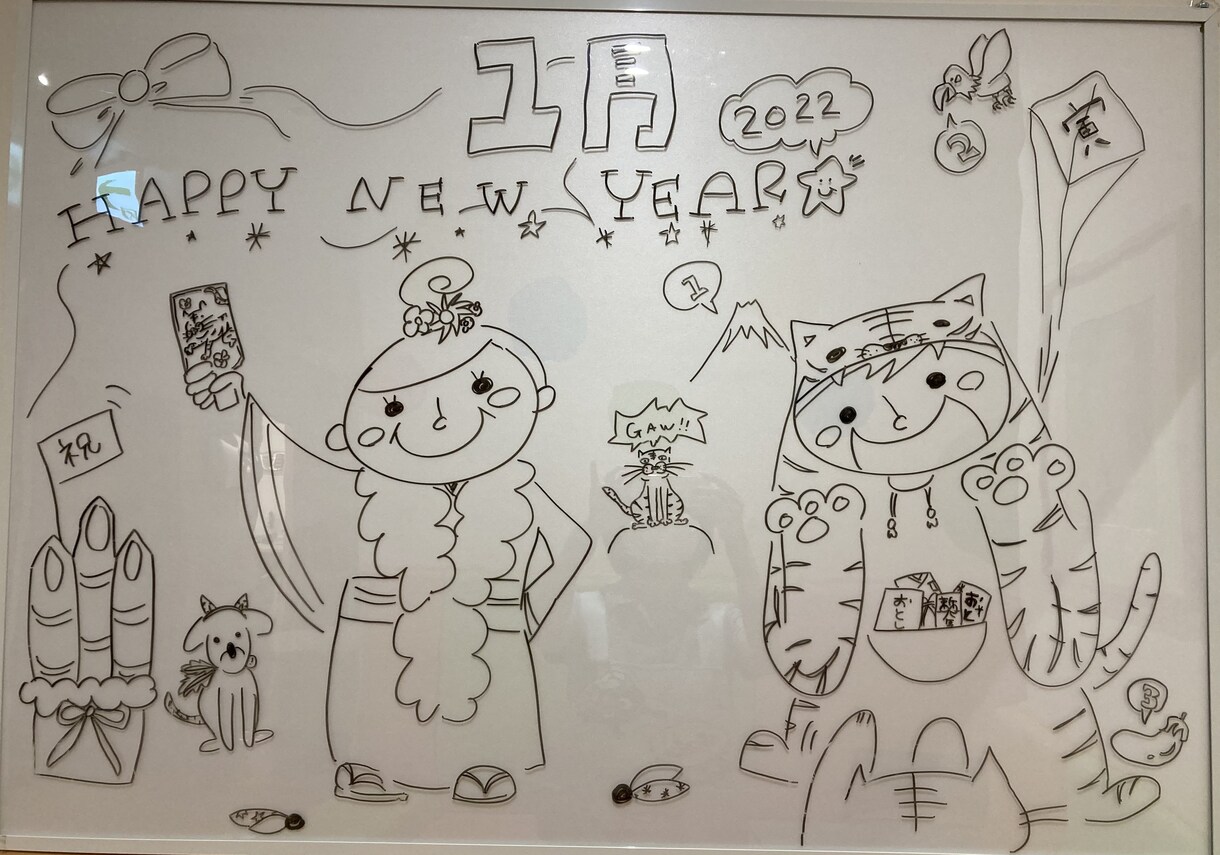 1月
2022
HAPPY NEW YEAR
2
寅
1
祝
GAW!!
おとし
おと
3